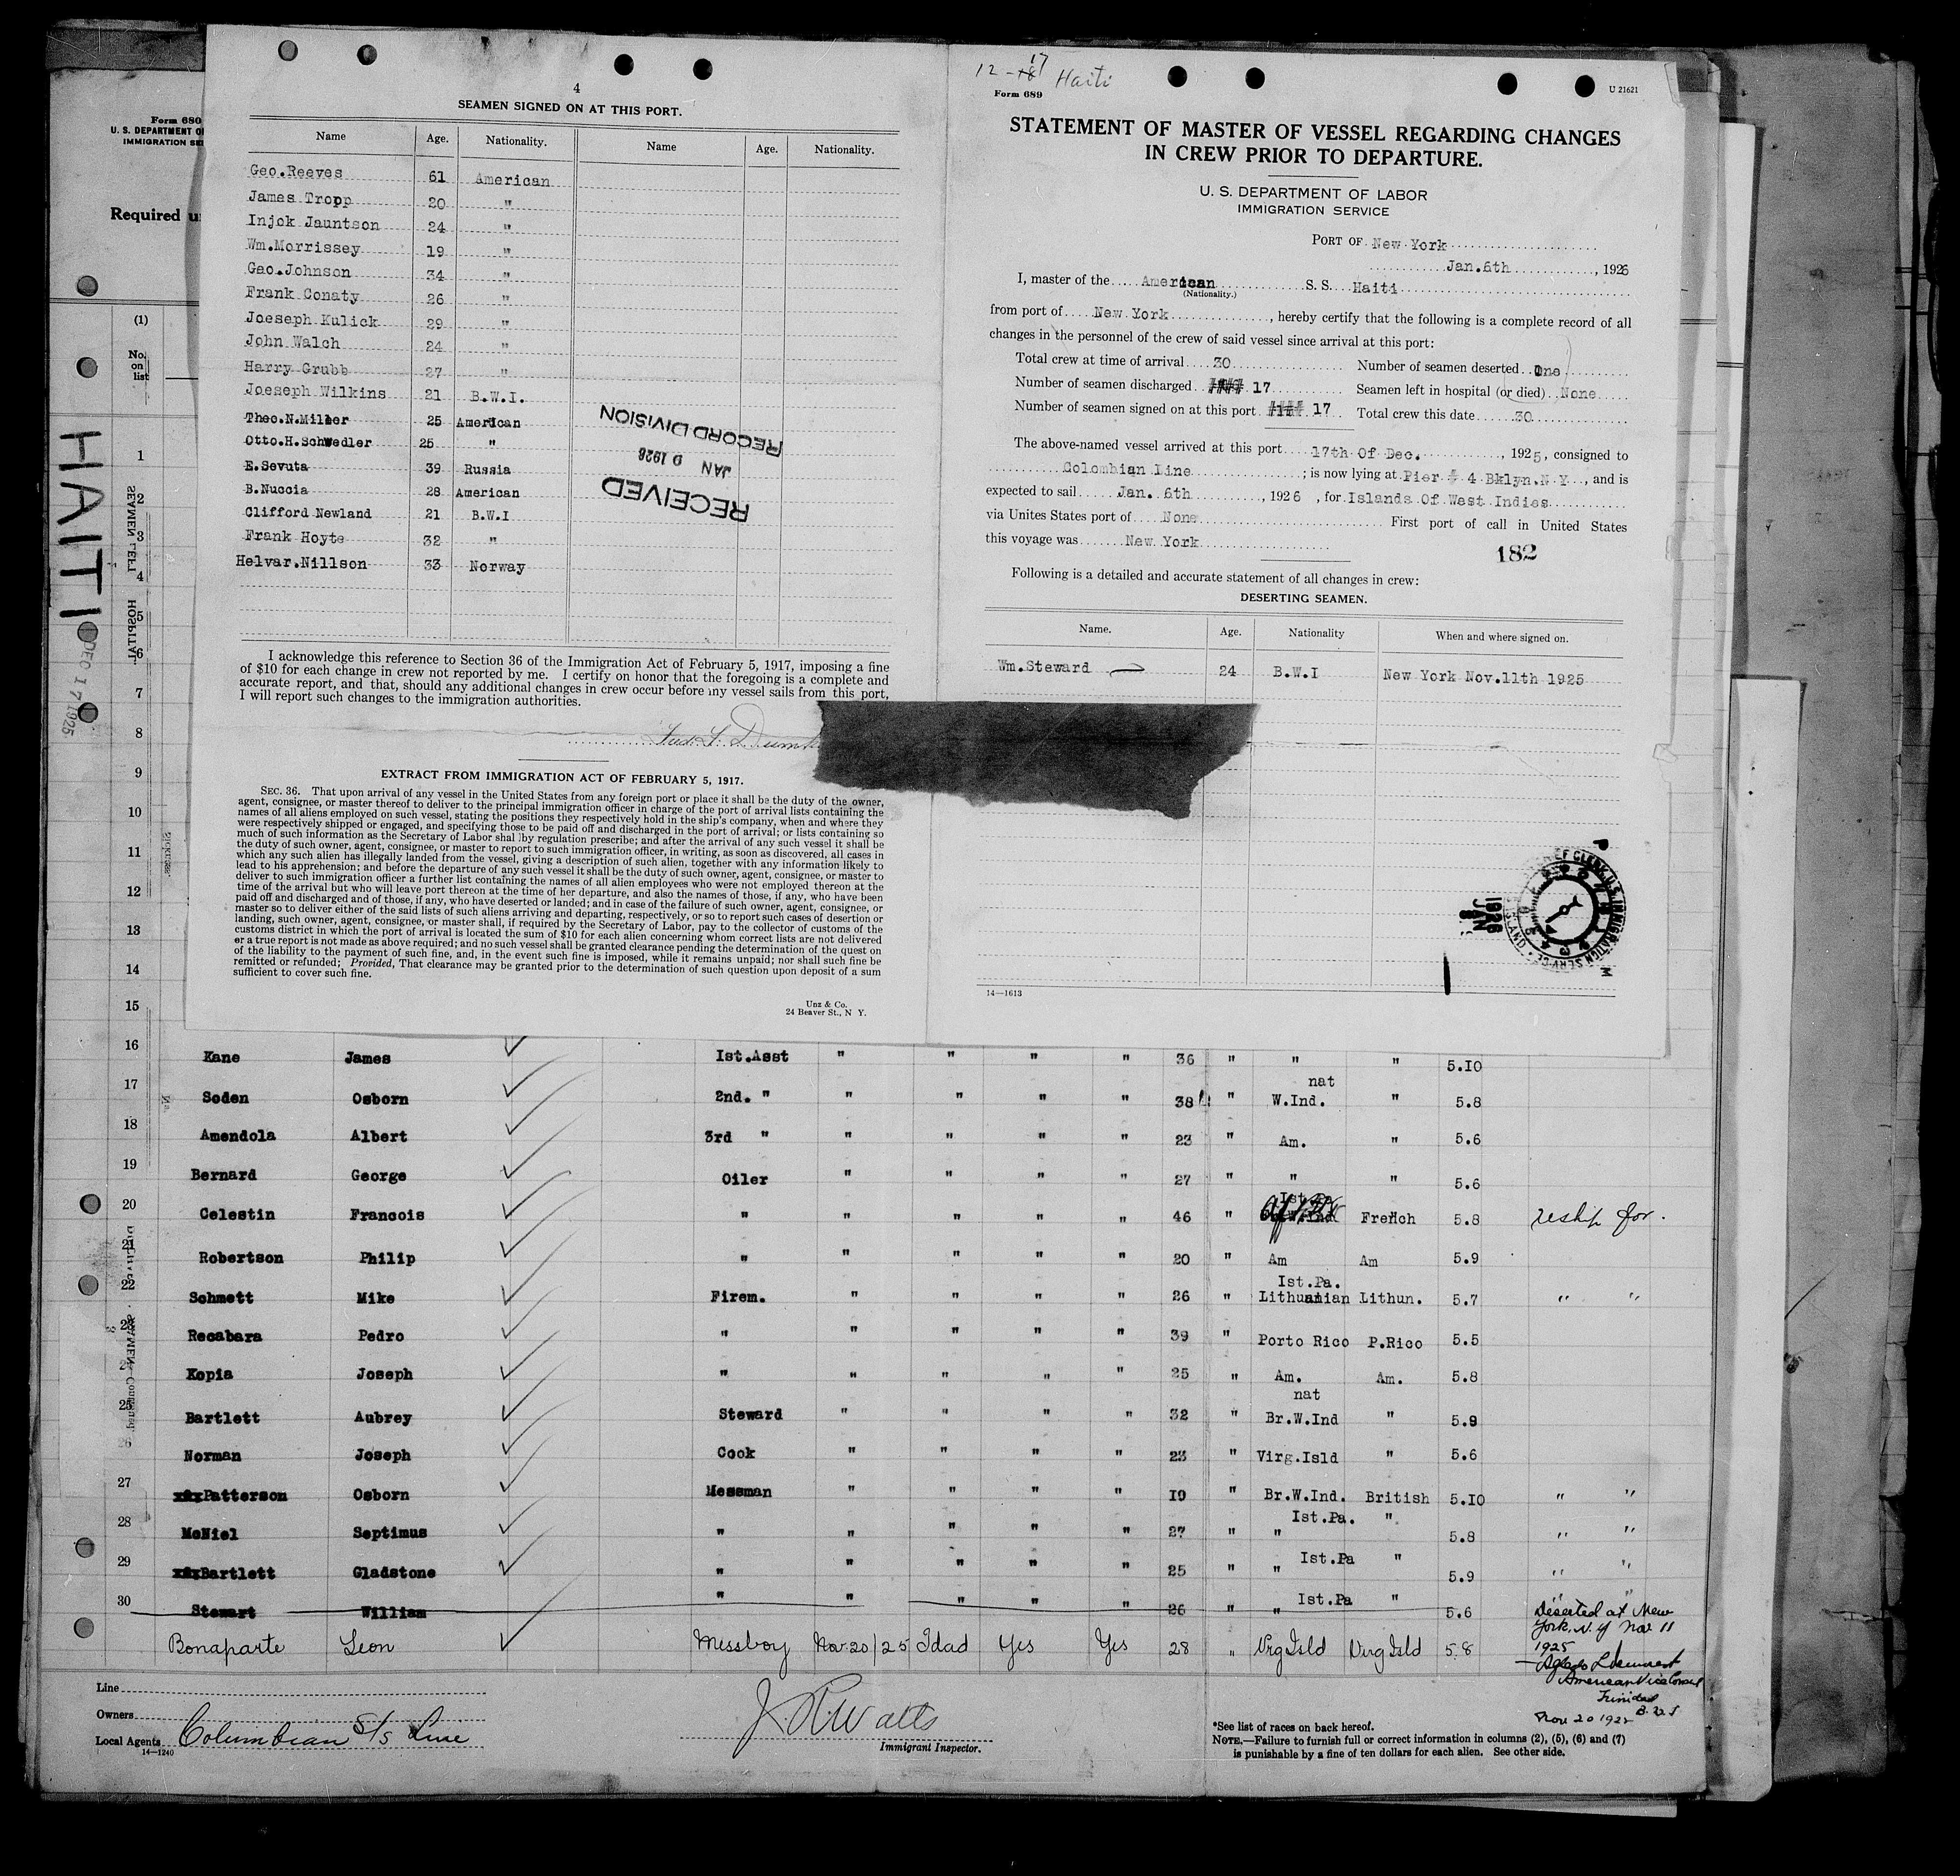 4
SEAMEN SIGNED ON AT THIS PORT.
Name Age. Nationality. Name Age. Nationality.
Geo.Reeves 61 American
James Tropp 20 "
Injok Jauntson 24 "
Wm.Morrissey 19 "
Gao.Johnson 34 "
Frank Conaty 26 "
Joeseph Kulick 29 "
John Walch 24 "
Harry Grubb 27 "
Joeseph Wilkins 21 B.W.I.
Theo.N.Miller 25 American
Otto.H.Schwedler 25 "
E.Sevuta 39 Russia
B.Nuccia 28 American
Clifford Newland 21 B.W.I
Frank Hoyte 32 "
Helvar.Nillson 33 Norway
RECEIVED
JAN 9 1926
RECORD DIVISION
I acknowledge this reference to Section 36 of the Immigration Act of February 5, 1917, imposing a fine
of $10 for each change in crew not reported by me. I certify on honor that the foregoing is a complete and
accurate report, and that, should any additional changes in crew occur before my vessel sails from this port,
I will report such changes to the immigration authorities.
EXTRACT FROM IMMIGRATION ACT OF FEBRUARY 5, 1917.
SEC. 36. That upon arrival of any vessel in the United States from any foreign port or place it shall be the duty of the owner,
agent, consignee, or master thereof to deliver to the principal immigration officer in charge of the port of arrival lists containing the
names of all aliens employed on such vessel, stating the positions they respectively hold in the ship's company, when and where they
were respectively shipped or engaged, and specifying those to be paid off and discharged in the port of arrival; or lists containing so
much of such information as the Secretary of Labor shal by regulation prescribe; and after the arrival of any such vessel it shall be
the duty of such owner, agent, consignee, or master to report to such immigration officer, in writing, as soon as discovered, all cases in
which any such alien has illegally landed from the vessel, giving a description of such alien, together with any information likely to
lead to his apprehension; and before the departure of any such vessel it shall be the duty of such owner, agent, consignee, or master to
deliver to such immigration officer a further list containing the names of all alien employees who were not employed thereon at the
time of the arrival but who will leave port thereon at the time of her departure, and also the names of those, if any, who have been
paid off and discharged and of those, if any, who have deserted or landed; and in case of the failure of such owner, agent, consignee, or
master so to deliver either of the said lists of such aliens arriving and departing, respectively, or so to report such cases of desertion or
landing, such owner, agent, consignee, or master shall, if required by the Secretary of Labor, pay to the collector of customs of the
customs district in which the port of arrival is located the sum of $10 for each alien concerning whom correct lists are not delivered
or a true report is not made as above required; and no such vessel shall be granted clearance pending the determination of the quest on
of the liability to the payment of such fine, and, in the event such fine is imposed, while it remains unpaid; nor shall such fine be
remitted or refunded; Provided, That clearance may be granted prior to the determination of such question upon deposit of a sum
sufficient to cover such fine.
Unz & Co.
24 Beaver St., N Y.
12-17 Haiti
Form 689
U 21621
STATEMENT OF MASTER OF VESSEL REGARDING CHANGES
IN CREW PRIOR TO DEPARTURE.
U. S. DEPARTMENT OF LABOR
IMMIGRATION SERVICE
PORT OF New York
Jan.6th, 1926
I, master of the American S. S. Haiti
(Nationality.)
from port of New York, hereby certify that the following is a complete record of all
changes in the personnel of the crew of said vessel since arrival at this port:
Total crew at time of arrival 30 Number of seamen deserted One
Number of seamen discharged 17 Seamen left in hospital (or died) None
Number of seamen signed on at this port 17 Total crew this date 30
The above-named vessel arrived at this port 17th Of Dec., 1925, consigned to
Colombian Line; is now lying at Pier # 4 Bklyn.N.Y, and is
expected to sail Jan. 6th, 1926, for Islands Of West Indies
via Unites States port of None First port of call in United States
this voyage was New York
182
Following is a detailed and accurate statement of all changes in crew:
DESERTING SEAMEN.
Name. Age. Nationality When and where signed on.
Wm.Steward 24 B.W.I New York Nov.11th 1925
1926 JAN 8
14—1613
Form 680
U. S. DEPARTMENT OF
IMMIGRATION SE
Required u
(1)
No. on list
HAITI
DEC 17 1925
SEAMEN LEFT
HOSPITAL
1
2
3
4
5
6
7
8
9
10
11
12
13
14
15
16 Kane James Ist.Asst " " " " 36 " " " 5.10
nat
17 Soden Osborn 2nd. " " " " " 38 " W.Ind. " 5.8
18 Amendola Albert 3rd " " " " " 23 " Am. " 5.6
19 Bernard George Oiler " " " " 27 " " " 5.6
20 Celestin Francois " " " " " 46 " French 5.8 reship for.
21 Robertson Philip " " " " " 20 " Am Am 5.9
Ist.Pa.
22 Schmett Mike Firem. " " " " 26 " Lithuanian Lithun. 5.7 " "
23 Recabara Pedro " " " " " 39 " Porto Rico P.Rico 5.5
24 Kopia Joseph " " " " " 25 " Am. Am. 5.8
nat
25 Bartlett Aubrey Steward " " " " 32 " Br.W.Ind " 5.9
26 Norman Joseph Cook " " " " 23 " Virg.Isld " 5.6
27 Patterson Osborn Messman " " " " 19 " Br.W.Ind. British 5.10 " "
28 McNiel Septimus " " " " " 27 " " Ist.Pa. " 5.8 " "
29 Bartlett Gladstone " " " " " 25 " " Ist.Pa " 5.9 " "
30 Stewart William " " " " " 26 " " Ist.Pa " 5.6 "
Deserted at New
York, N.Y Nov 11
1925
Bonaparte Leon Messboy Nov 20/25 Tdad Yes Yes 28 " Vrg Isld Virg Isld 5 8
American Vice Consul
Trinidad
B.W.I
Nov 20 192
Line
Owners
Local Agents Columbian S/S Line
14—1240
J. R Watts
Immigrant Inspector.
*See list of races on back hereof.
NOTE.—Failure to furnish full or correct information in columns (2), (5), (6) and (7)
is punishable by a fine of ten dollars for each alien. See other side.